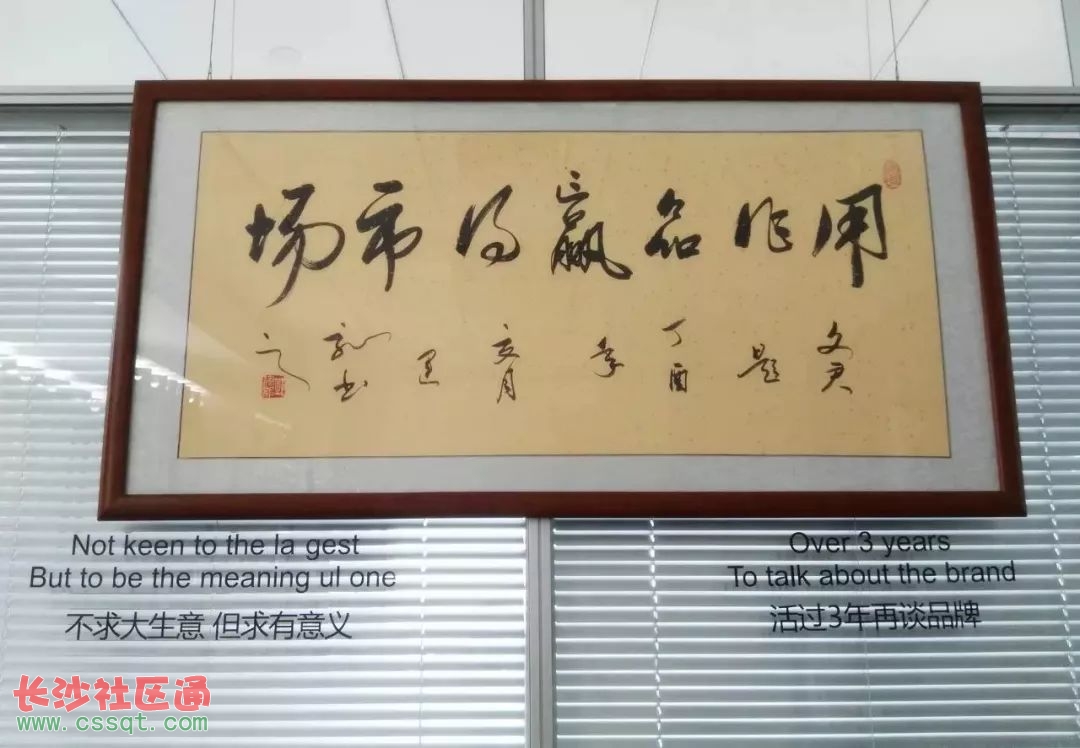 用作品赢得市场
题 丁酉 年 亥月 书 之
Not keen to the la gest
But to be the meaning ul one
不求大生意 但求有意义
Over 3 years
To talk about the brand
活过3年再谈品牌
长沙社区通
www.cssqt.com